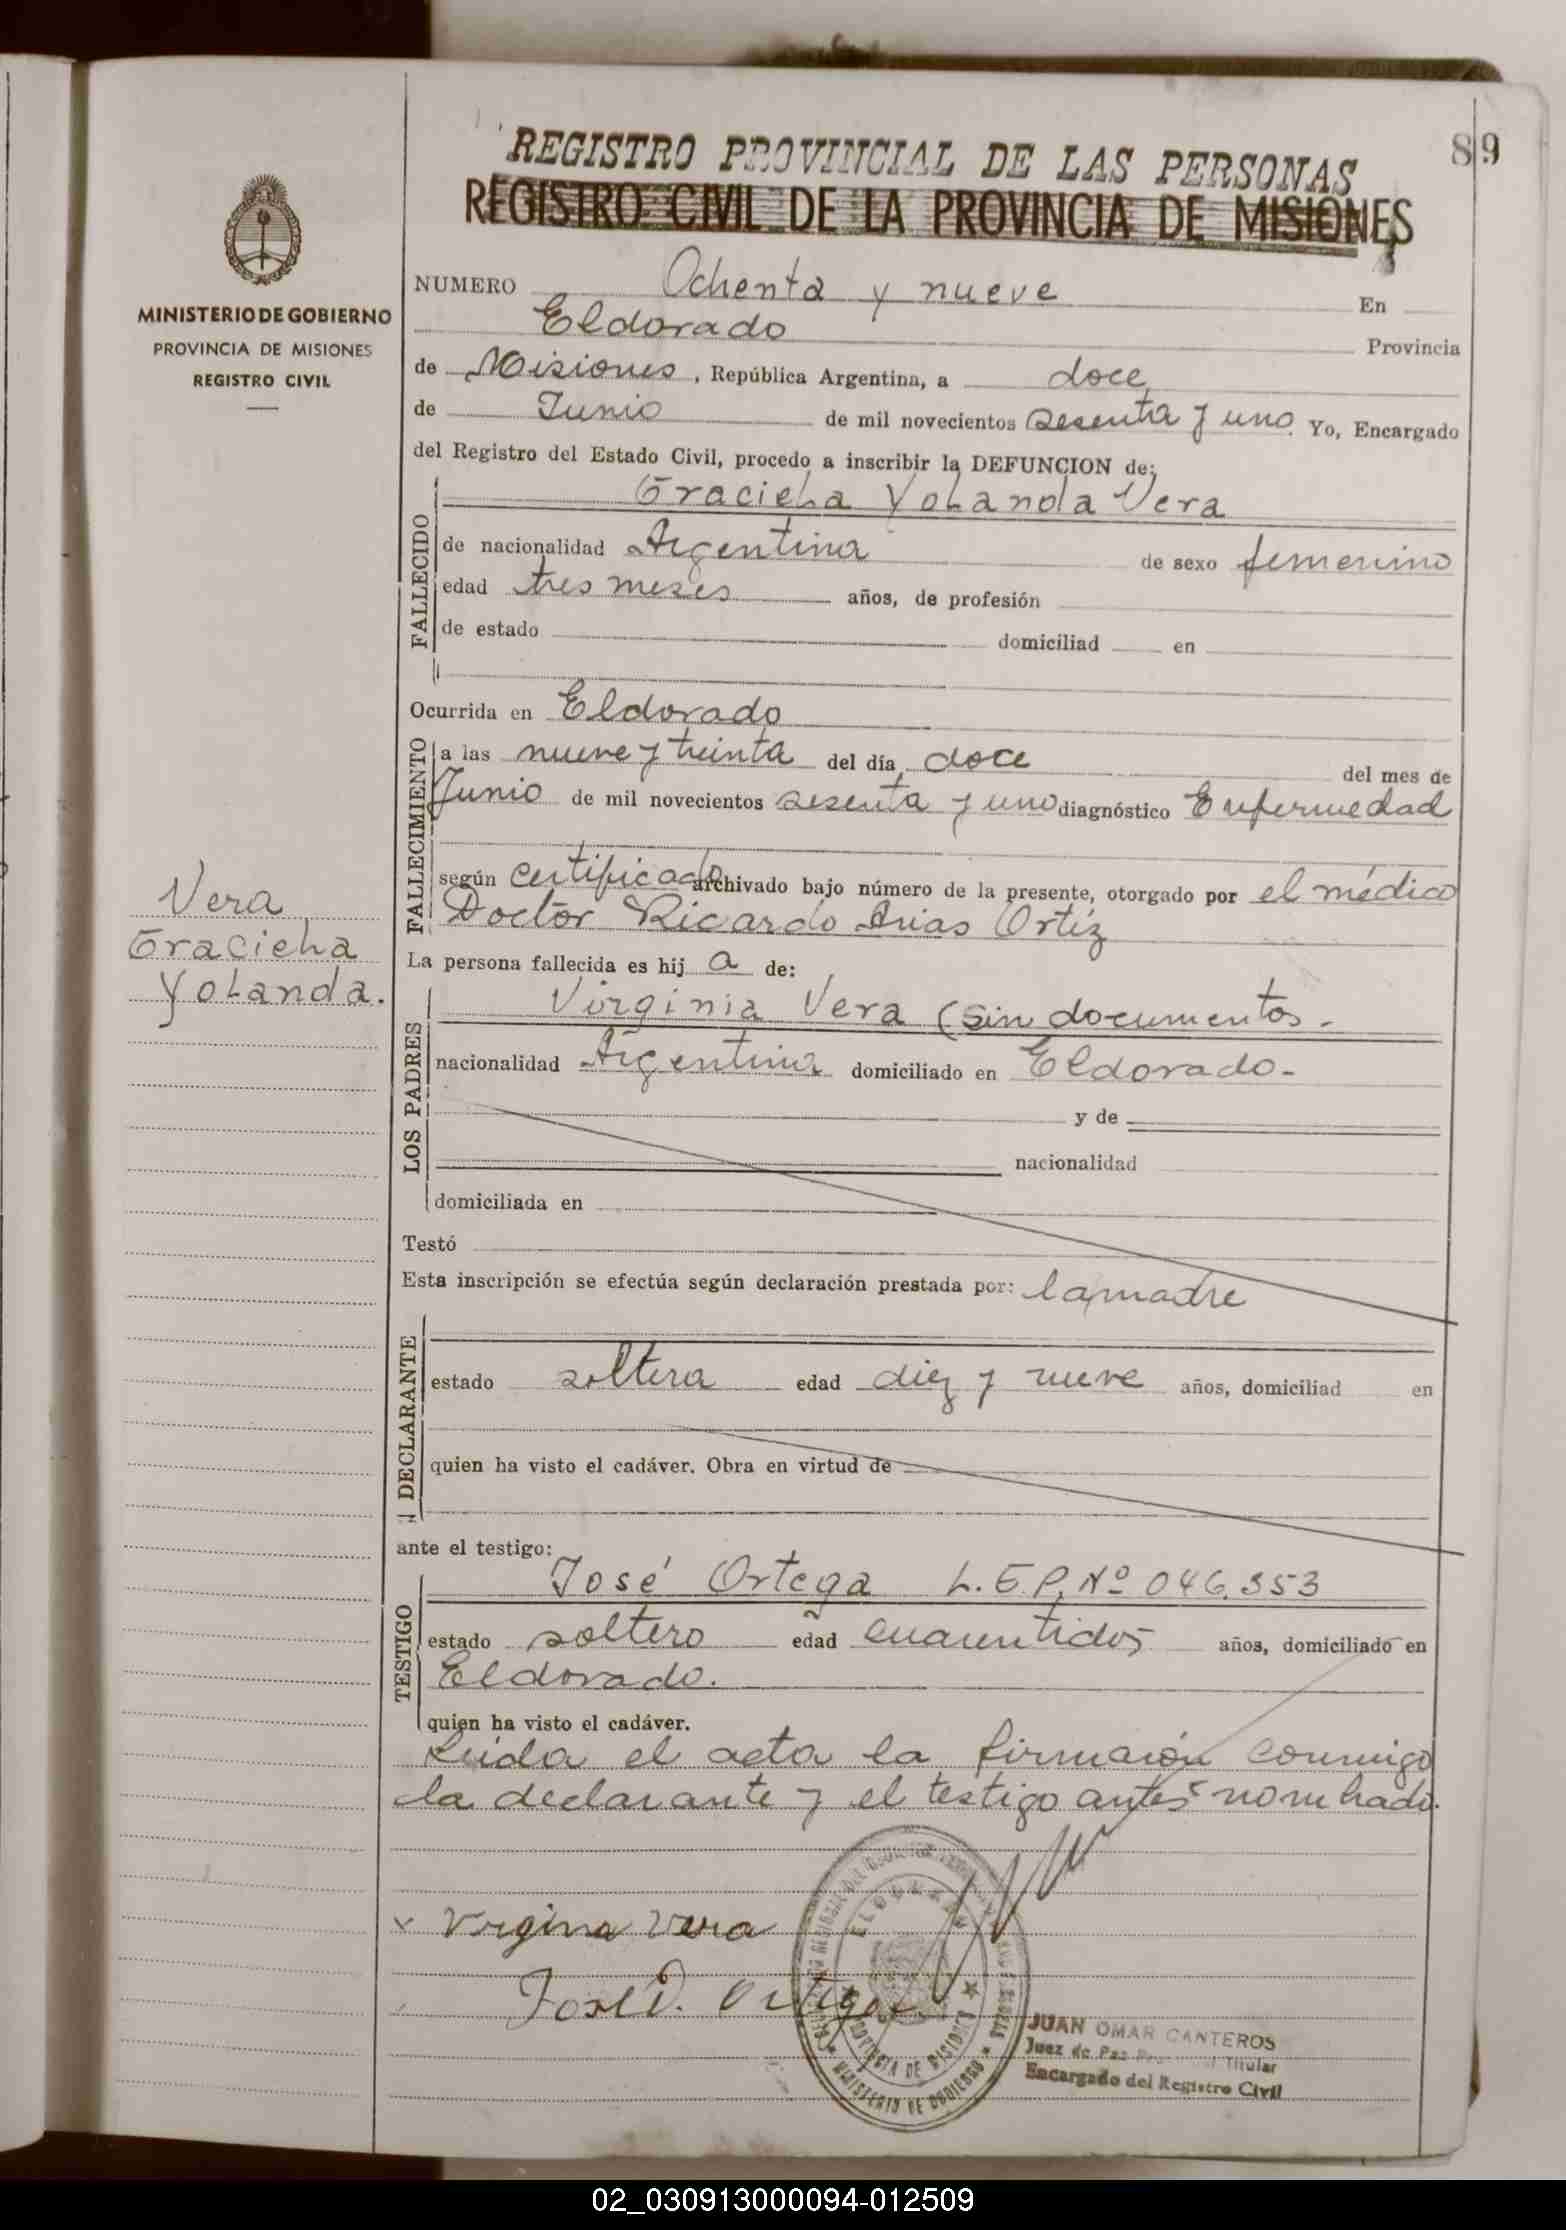 89
REGISTRO PROVINCIAL DE LAS PERSONAS
REGISTRO CIVIL DE LA PROVINCIA DE MISIONES
MINISTERIO DE GOBIERNO
PROVINCIA DE MISIONES
REGISTRO CIVIL
NUMERO Ochenta y nueve En
Eldorado Provincia
de Misiones, República Argentina, a doce
de Junio de mil novecientos sesenta y uno. Yo, Encargado
del Registro del Estado Civil, procedo a inscribir la DEFUNCION de:
FALLECIDO
Graciela Yolanda Vera
de nacionalidad Argentina de sexo femenino
edad tres meses años, de profesión
de estado domiciliad en
Ocurrida en Eldorado
FALLECIMIENTO
a las nueve y treinta del día doce del mes de
Junio de mil novecientos sesenta y uno diagnóstico Enfermedad
según certificado archivado bajo número de la presente, otorgado por el médico
Doctor Ricardo Arias Ortíz
Vera
Graciela
Yolanda.
La persona fallecida es hij a de:
LOS PADRES
Virginia Vera (Sin documentos.
nacionalidad Argentina domiciliado en Eldorado.
y de
nacionalidad
domiciliada en
Testó
Esta inscripción se efectúa según declaración prestada por: la madre
DECLARANTE
estado soltera edad diez y nueve años, domiciliad en
quien ha visto el cadáver. Obra en virtud de
ante el testigo:
TESTIGO
José Ortega L.E.P. Nº 046.353
estado soltero edad cuarentidos años, domiciliado en
Eldorado.
quien ha visto el cadáver.
Leida el acta la firmarón conmigo
la declarante y el testigo antes nombrado.
x Virgina Vera
José D. Ortega
ELDORADO
PROVINCIA DE MISIONES
MINISTERIO DE GOBIERNO
JUAN OMAR CANTEROS
Juez de Paz Titular
Encargado del Registro Civil
02_030913000094-012509